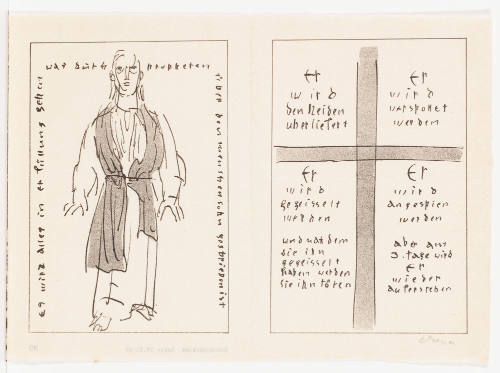 es wird alles in erfüllung gehen
was durch propheten
über den menschensohn geschrieben ist
Er
wird
den Heiden
überliefert
Er
wird
verspottet
werden
Er
wird
gegeisselt
werden
und nachdem
sie ihn
gegeisselt
haben werden
sie ihn töten
Er
wird
angespien
werden
aber am
3. tage wird
Er
wieder
auferstehen